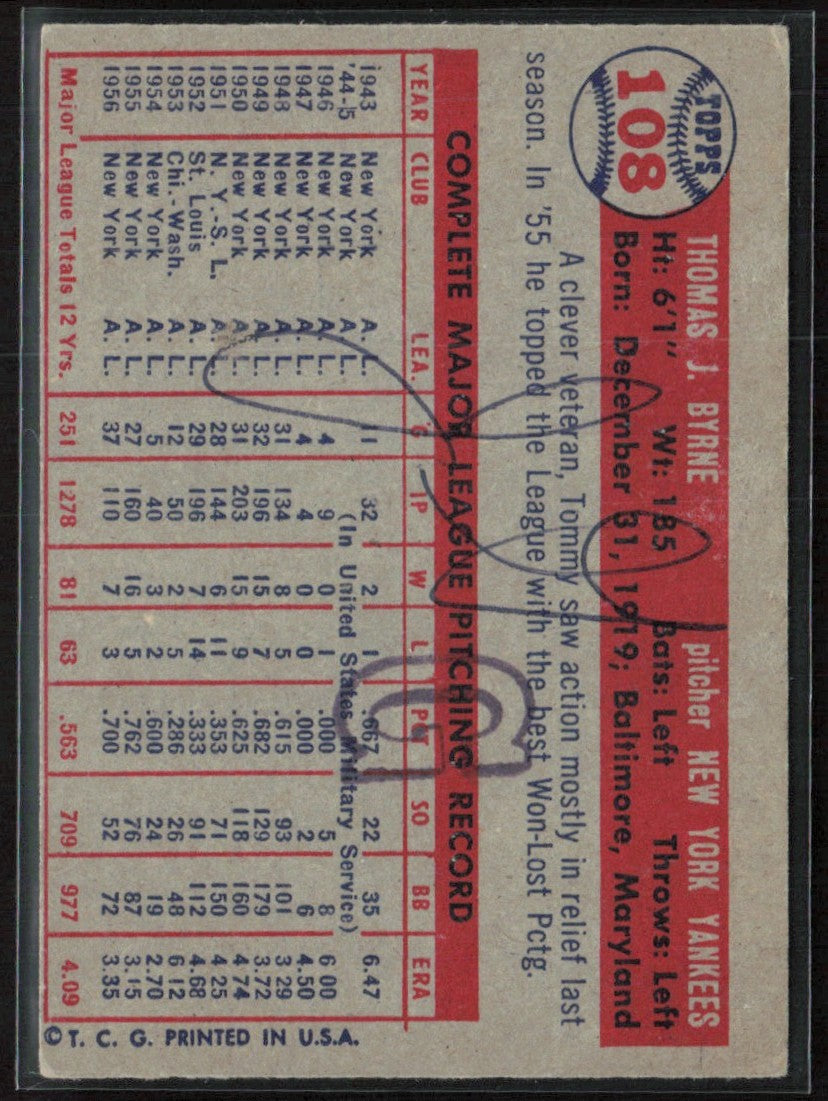 TOPPS
108
THOMAS J. BYRNE pitcher NEW YORK YANKEES
Ht: 6'1" Wt: 185 Bats: Left Throws: Left
Born: December 31, 1919; Baltimore, Maryland
A clever veteran, Tommy saw action mostly in relief last
season. In '55 he topped the League with the best Won-Lost Pctg.
G
COMPLETE MAJOR LEAGUE PITCHING RECORD
YEAR CLUB LEA. G IP W L PCT SO BB ERA
1943 New York A. L. 11 32 2 1 .667 22 35 6.47
'44-5 New York A. L. (In United States Military Service)
1946 New York A. L. 4 9 0 1 .000 5 8 6.00
1947 New York A. L. 4 4 0 0 .000 2 6 4.50
1948 New York A. L. 31 134 8 5 .615 93 101 3.29
1949 New York A. L. 32 196 15 7 .682 129 179 3.72
1950 New York A. L. 31 203 15 9 .625 118 160 4.74
1951 N. Y.-S. L. A. L. 28 144 6 11 .353 71 150 4.25
1952 St. Louis A. L. 29 196 7 14 .333 91 112 4.68
1953 Chi.-Wash. A. L. 12 50 2 5 .286 26 48 6.12
1954 New York A. L. 5 40 3 2 .600 24 19 2.70
1955 New York A. L. 27 160 16 5 .762 76 87 3.15
1956 New York A. L. 37 110 7 3 .700 52 72 3.35
Major League Totals 12 Yrs. 251 1278 81 63 .563 709 977 4.09
© T. C. G. PRINTED IN U.S.A.